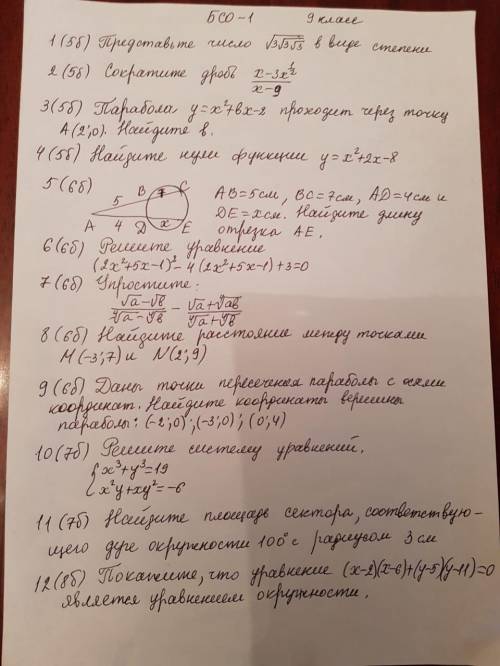 БСО-1 9 класс
1(5б) Представьте число √3√3√3 в виде степени
2(5б) Сократите дробь (x-3x^(1/2))/(x-9)
3(5б) Парабола y=x²+bx-2 проходит через точку
A(2;0). Найдите b.
4(5б) Найдите нули функции y=x²+2x-8
5(6б) A 5 B 7 C 4 D x E
AB=5см, BC=7см, AD=4см и
DE=xсм. Найдите длину
отрезка AE.
6(6б) Решите уравнение
(2x²+5x-1)²-4(2x²+5x-1)+3=0
7(6б) Упростите:
(√a-√b)/(∜a-∜b) - (√a+∜ab)/(∜a+∜b)
8(6б) Найдите расстояние между точками
M(-3;7) и N(2;9)
9(6б) Даны точки пересечения параболы с осями
координат. Найдите координаты вершины
параболы: (-2;0); (-3;0); (0;4)
10(7б) Решите систему уравнений.
{x³+y³=19
{x²y+xy²=-6
11(7б) Найдите площадь сектора, соответствую-
щего дуге окружности 100° с радиусом 3 см
12(8б) Покажите, что уравнение (x-2)(x-6)+(y-5)(y-11)=0
является уравнением окружности.